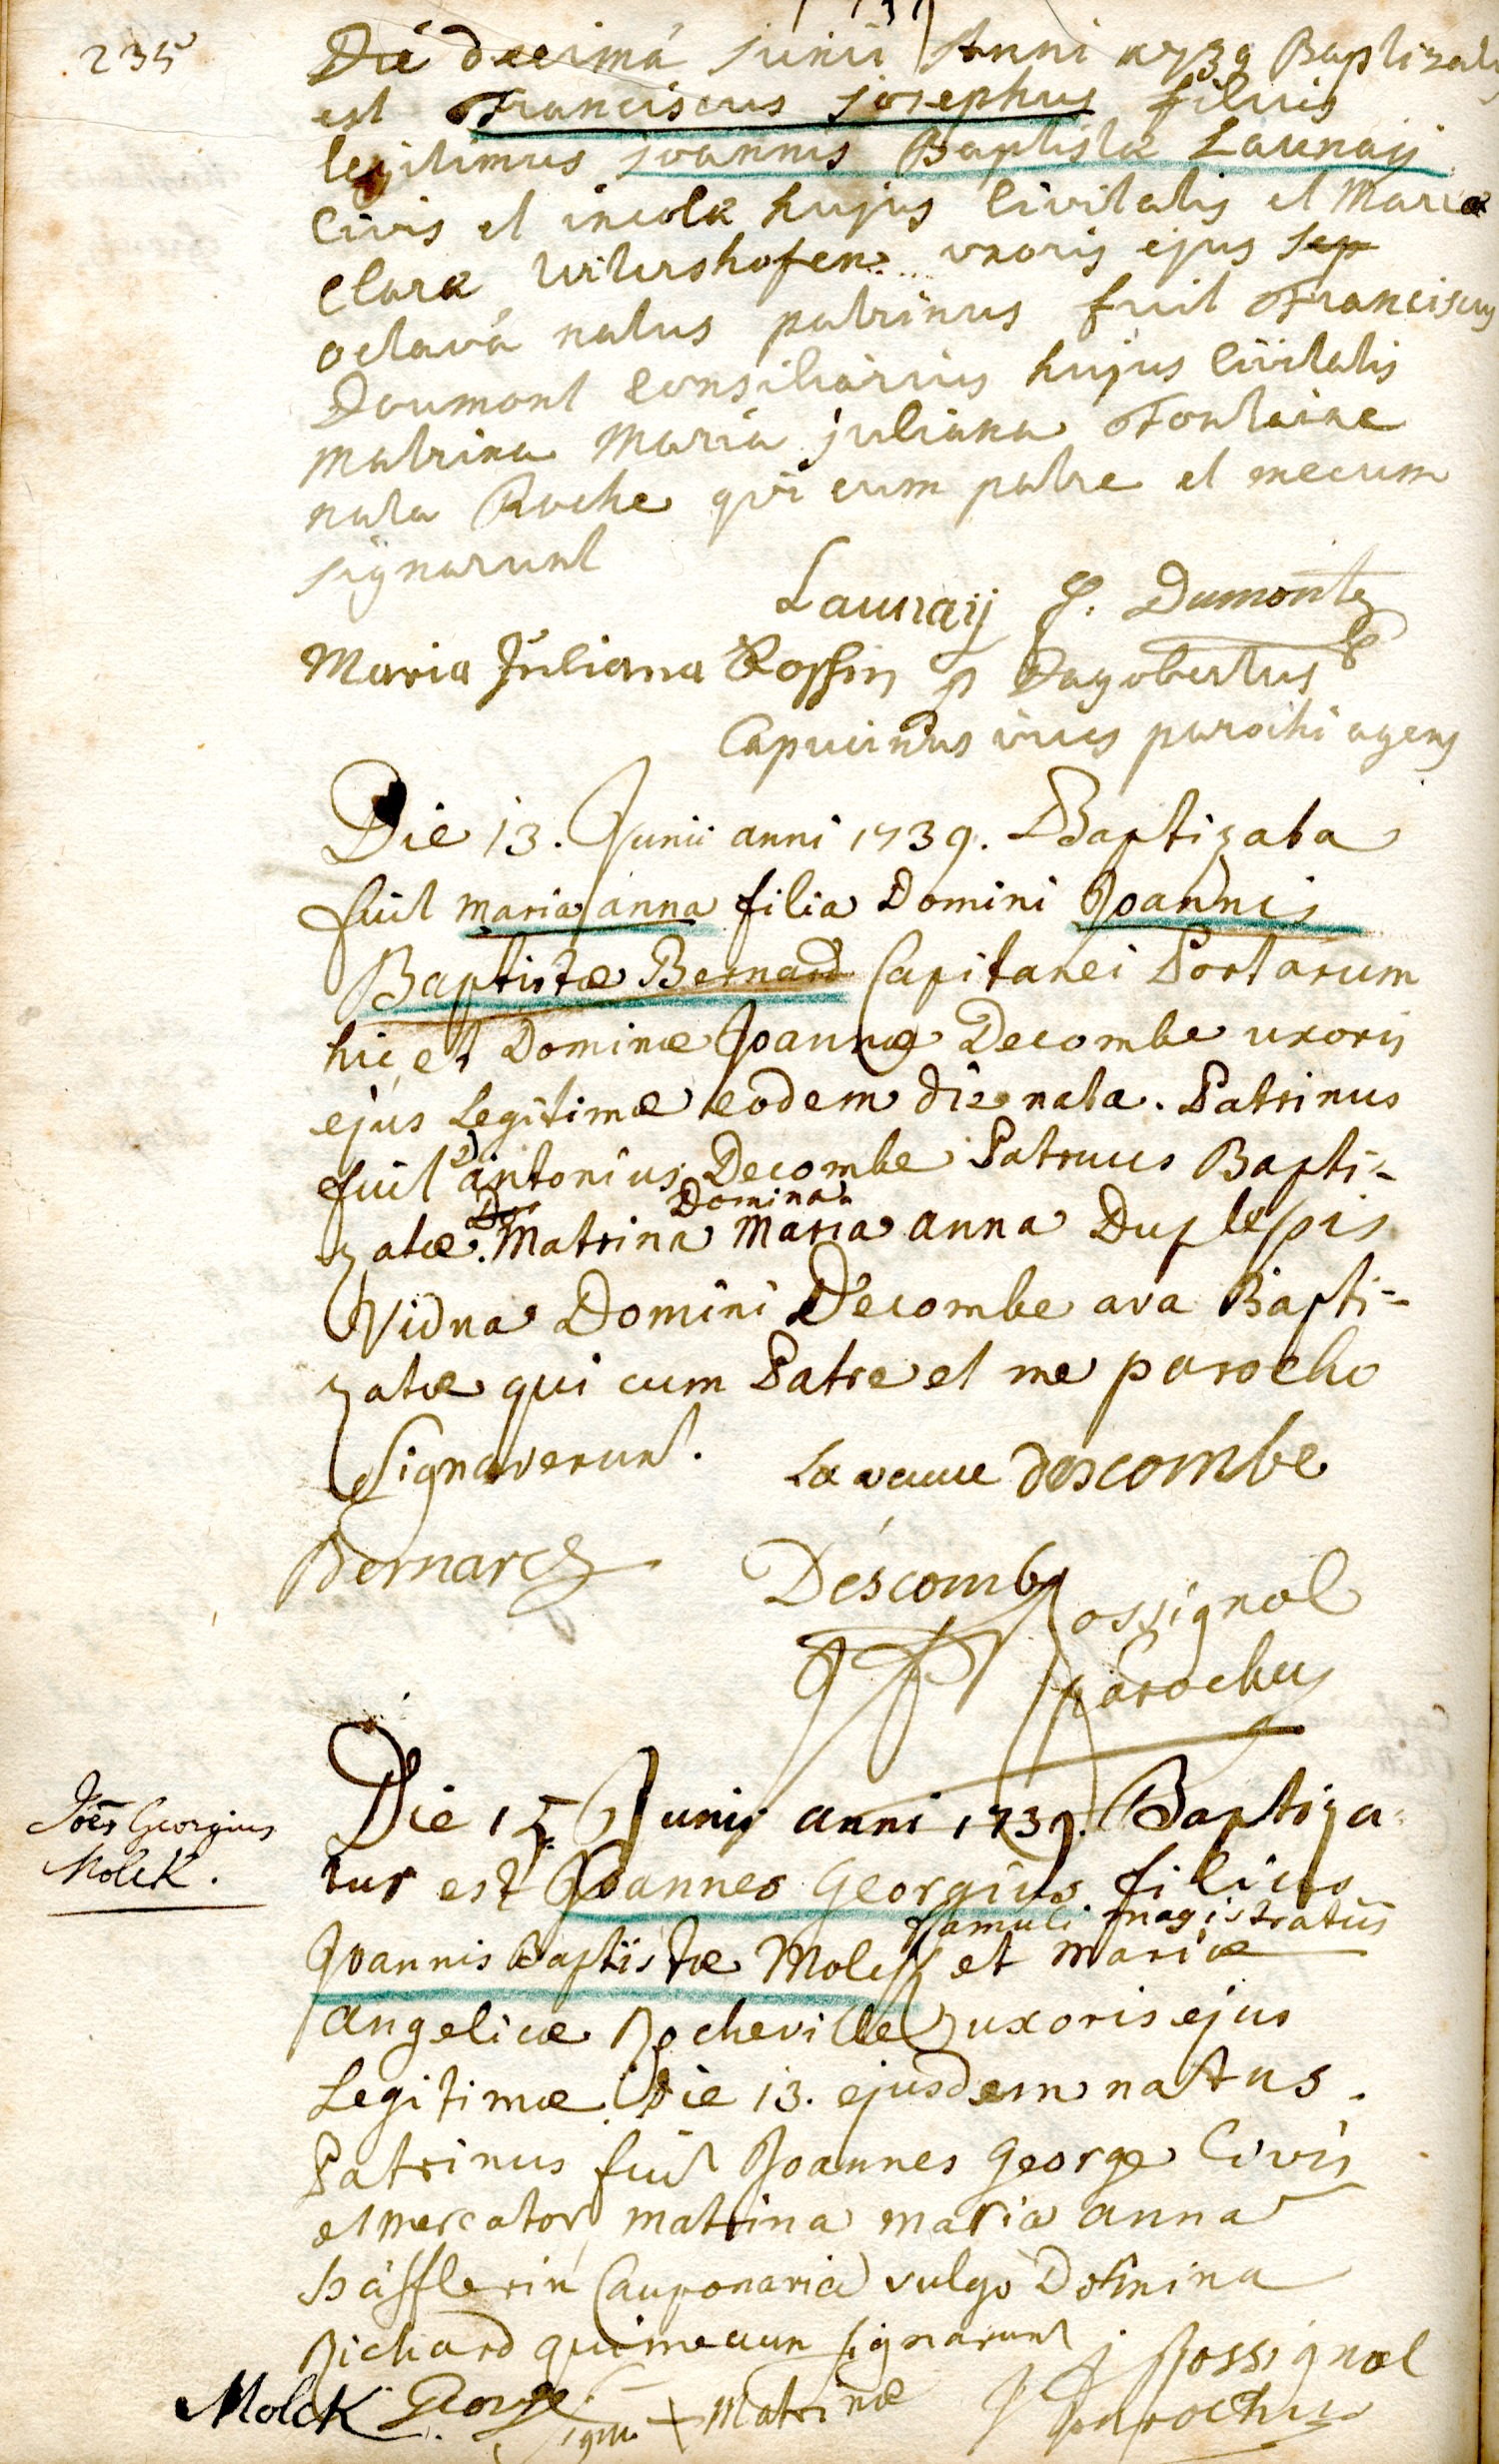 235
Die decimá Junii Anni 1739 Baptizatus
est Franciscus Josephus filius
legitimus Joannis Baptistæ Launaÿ
Civis et incolæ hujus Civitatis et Mariæ
Claræ Witershofen uxoris ejus sep
octavá natus patrinus fuit Franciscus
Doumont Consiliarius hujus Civitatis
matrina Maria juliana Fontaine
nata Roche qui cum patre et mecum
signarunt
Launaij F. Dumont
Maria Juliana Rossin p Dagobertus
Capucinus vices parochi agens
Die 13. Junii anni 1739. Baptizata
fuit maria anna filia Domini Joannis
Baptistæ Bernard Capitanei Portarum
hic, et Dominæ Joannæ Decombe uxoris
ejus Legitimæ eodem die nata. Patrinus
fuit D antonius Decombe Patruus Bapti-
zatæ. Do Matrina Domina Maria anna Duplessis
Vidua Domini Decombe ava Bapti-
zatæ qui cum Patre et me parocho
Signaverunt. La veuue descombe
Bernard Déscombe
Rossignol
parochus
Die 15 Junij anni 1739. Baptiza-
tus est Joannes Georgius filius
Joes Georgius
Molck.
famuli magistratus
Joannis Baptistæ Molck et Mariæ
angelicæ Rocheville uxoris ejus
Legitimæ Die 13. ejusdem natus.
Patrinus fuit Joannes George Civis
et mercator, matrina maria anna
häfflerin Cauponaria vulgo Domina
Richard qui mecum signarunt J Rossignol
parochus
Molck George Sign. + Matrinæ